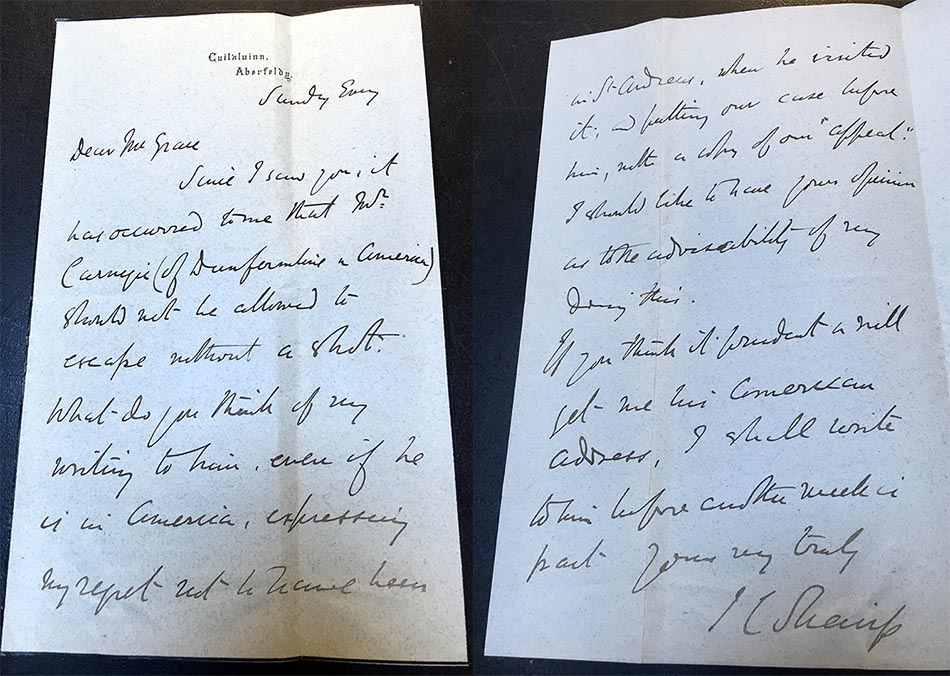 Cuilaluinn,
Aberfeldy.
Sunday Evng
Dear Mr Grace
Since I saw you, it
has occurred to me that Mr.
Carnegie (of Dunfermline & America)
should not be allowed to
escape without a shot.
What do you think of my
writing to him, even if he
is in America, expressing
my regret not to have been
in St Andrews, when he visited
it, and putting our case before
him, with a copy of our "appeal".
I should like to have your opinion
as to the adviseability of my
doing this.
If you think it prudent & will
get me his American
address, I shall write
to him before another week is
past yours very truly
J C Shairp